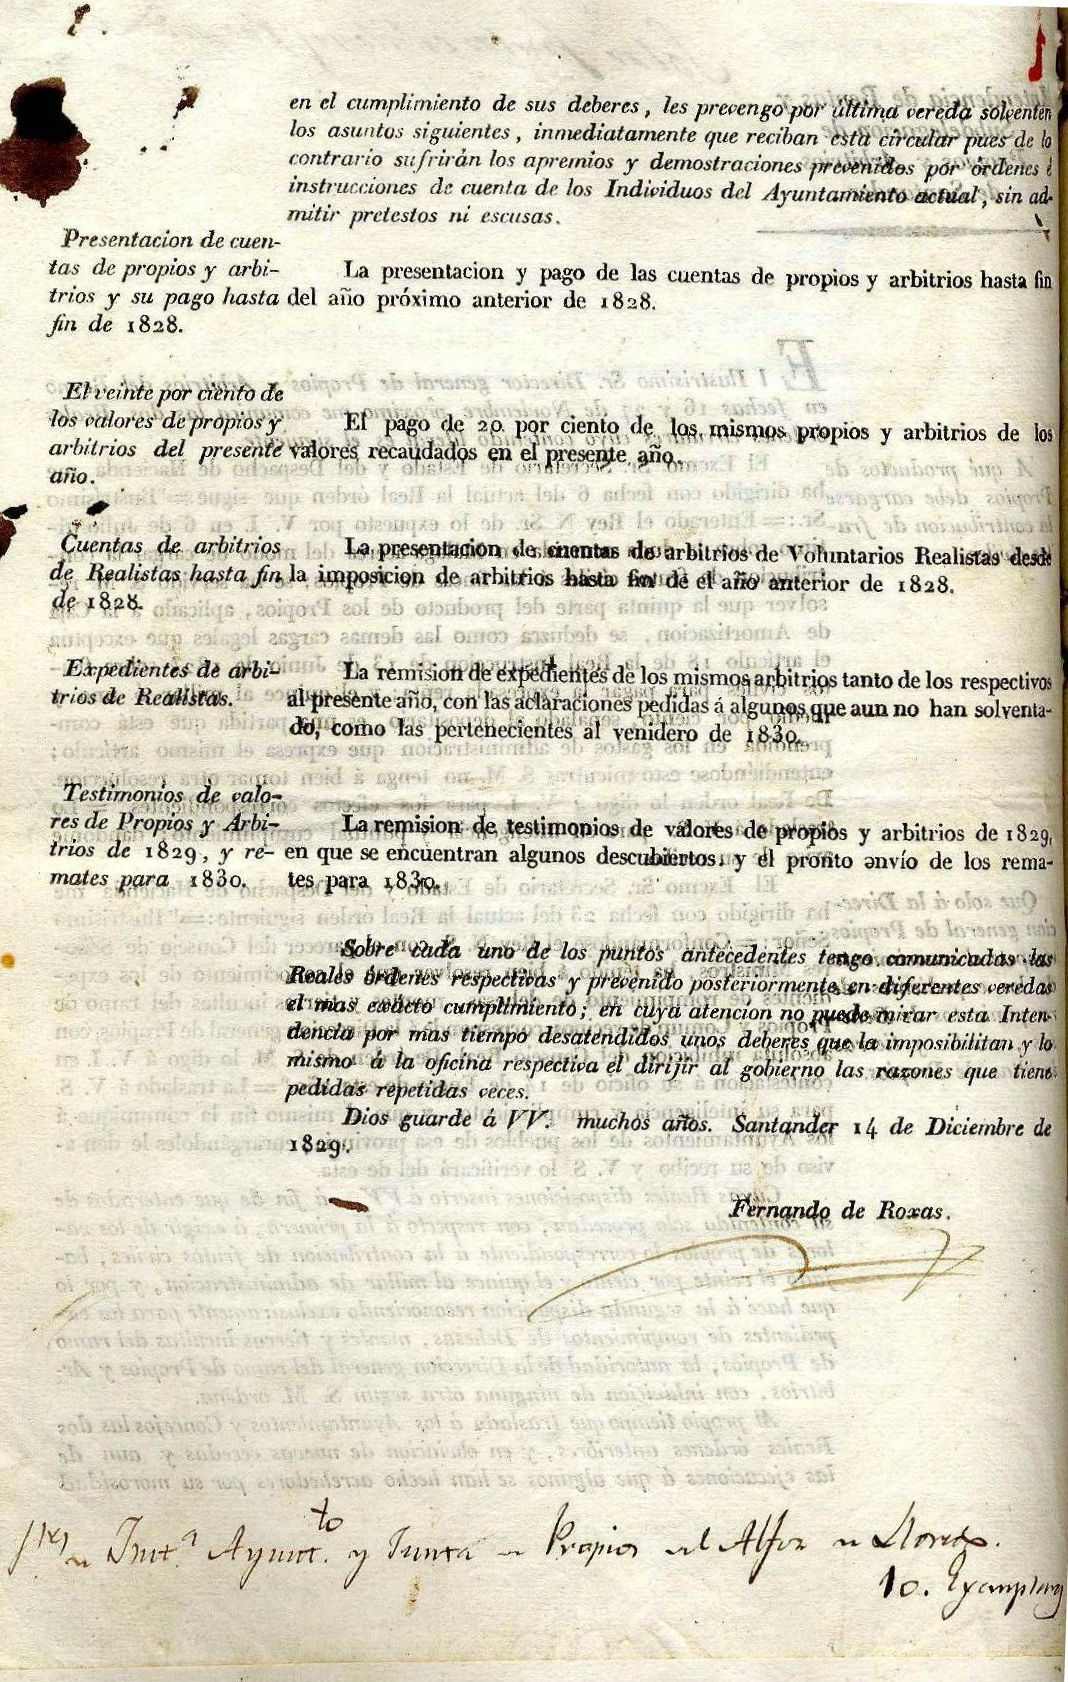 en el cumplimiento de sus deberes, les prevengo por última vereda solventen
los asuntos siguientes, inmediatamente que reciban esta circular pues de lo
contrario sufrirán los apremios y demostraciones prevenidos por órdenes é
instrucciones de cuenta de los Individuos del Ayuntamiento actual, sin ad-
mitir pretestos ni escusas.
Presentacion de cuen-
tas de propios y arbi-
trios y su pago hasta
fin de 1828.
La presentacion y pago de las cuentas de propios y arbitrios hasta fin
del año próximo anterior de 1828.
El veinte por ciento de
los valores de propios y
arbitrios del presente
año.
El pago de 20 por ciento de los mismos propios y arbitrios de los
valores recaudados en el presente año.
Cuentas de arbitrios
de Realistas hasta fin
de 1828.
La presentacion de cuentas de arbitrios de Voluntarios Realistas desde
la imposicion de arbitrios hasta fin de el año anterior de 1828.
Expedientes de arbi-
trios de Realistas.
La remision de expedientes de los mismos arbitrios tanto de los respectivos
al presente año, con las aclaraciones pedidas á algunos que aun no han solventa-
do, como las pertenecientes al venidero de 1830.
Testimonios de valo-
res de Propios y Arbi-
trios de 1829, y re-
mates para 1830.
La remision de testimonios de valores de propios y arbitrios de 1829,
en que se encuentran algunos descubiertos, y el pronto envío de los rema-
tes para 1830.
Sobre cada uno de los puntos antecedentes tengo comunicadas las
Reales órdenes respectivas y prevenido posteriormente en diferentes veredas
el mas exácto cumplimiento; en cuya atencion no puede mirar esta Inten-
dencia por mas tiempo desatendidos unos deberes que la imposibilitan y lo
mismo á la oficina respectiva el dirijir al gobierno las razones que tiene
pedidas repetidas veces.
Dios guarde á VV. muchos años. Santander 14 de Diciembre de
1829.
Fernando de Roxas.
Ayunt.to y Junta Propios
10. Exemplares